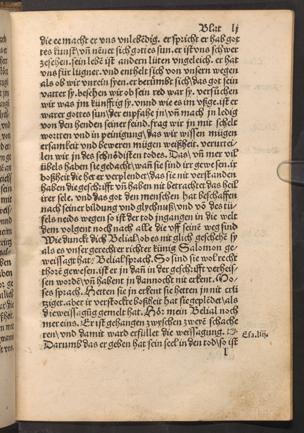 Blat lj
die ee macht er vns vnlebedig. er spricht er hab got
tes kunst/vñ neuet sich gottes sun. er ist vns schwer
zesehen. sein lebē ist andern lüten vngeleich. er hat
vns für lugner. vnd enthelt sich von vnsern wegen
als ob wir vnrein seyen. er berümbt sich/das got sein
vatter sy. besehen wir ob sein red war sy. versuchen
wir was jm künfftig sy. vnnd wie es im vßge. ist er
warer gottes sun/ der empfahe jn/vñ mach jn ledig
von den henden seiner feind. frag wir jn mit schelt
wortten vnd in peinigung/das wir wissen mügen
ersamkeit vnd beweren mügen weißheit. verurtei-
len wir jn des schnödisten todes. Das/vñ mer vil
übels haben sie gedacht/wañ sie sind irr gewesen. ir
boßheit die het er verplendet/das sie nit verstanden
haben die geschrifft vñ haben nit betrachtet das heil
irer sele. vnd das got den menschen hat beschaffen
nach seiner bildung vnd glychnuß/vnd vō des tü-
fels neids wegen so ist der tod jngangen in die welt
dem volgent noch nach alle die vff seinē weg sind
Wie dunckt dich Belial/ob es nit glich geschehē sy
als es vnser gerechter richter künig Salomon ge-
weissagt hat: Belial sprach. So sind sie wol recht
thorē gewesen. ist er jn dañ in der geschrifft verheis-
sen wordē/vñ haben jn dannocht nit erkent. Mo-
ses sprach. Hetten sie jn erkent sie hetten jn nit crü
tziget. aber ir verstockte boßheit hat sie geplēdet/als
die weissagūg gemelt hat. Hör mein Belial noch
mer eins. Er ist gehangen zwyschen zweyē schache
ren/vnd damit ward erfüllet die weissagung.
Darumb das er geben hat sein seel in den tod/so ist
Esa.liij.
I